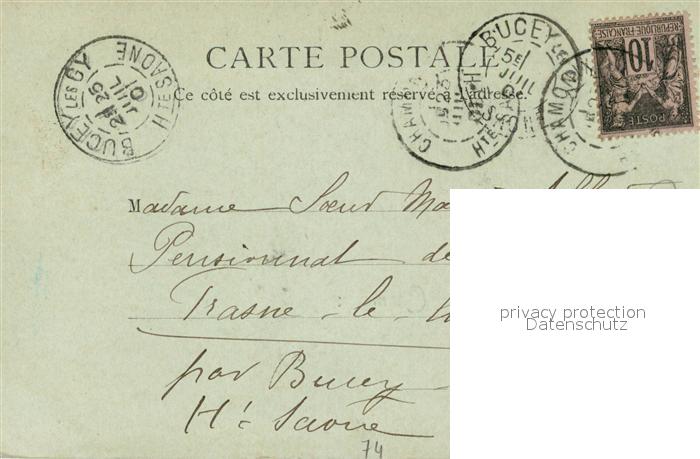 CARTE POSTALE
Ce côté est exclusivement réservé à l'adresse.
BUCEY LES GY
Hte SAONE
25
JUIL
01
CHAMO
BUCEY LES
Hte SAONE
CHAMO
RÉPUBLIQUE FRANÇAISE
10
POSTE
Madame Sœur Ma
Pensionnat de
Frasne-le-
par Bucey
Hte Saône
74
privacy protection
Datenschutz